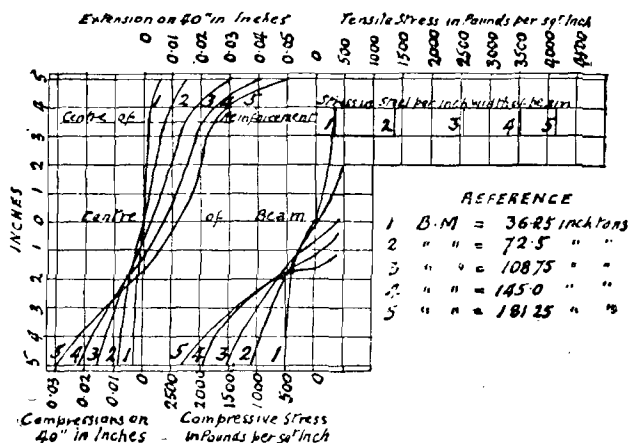 Extension on 40" in Inches Tensile Stress in Pounds per sqr Inch
0 0.01 0.02 0.03 0.04 0.05 0 500 1000 1500 2000 2500 3000 3500 4000 4500
5 4 3 2 1 0 1 2 3 4 5
INCHES
1 2 3 4 5
Centre of Reinforcement
Stress in Steel per inch width of beam
1 2 3 4 5
Centre of Beam
REFERENCE
1 B.M = 36.25 inch tons
2 " " = 72.5 " "
3 " " = 108.75 " "
4 " " = 145.0 " "
5 " " = 181.25 " "
5 4 3 2 1 5 4 3 2 1
0.03 0.02 0.01 0 2500 2000 1500 1000 500 0
Compressions on Compressive Stress
40" in Inches in Pounds per sqr Inch